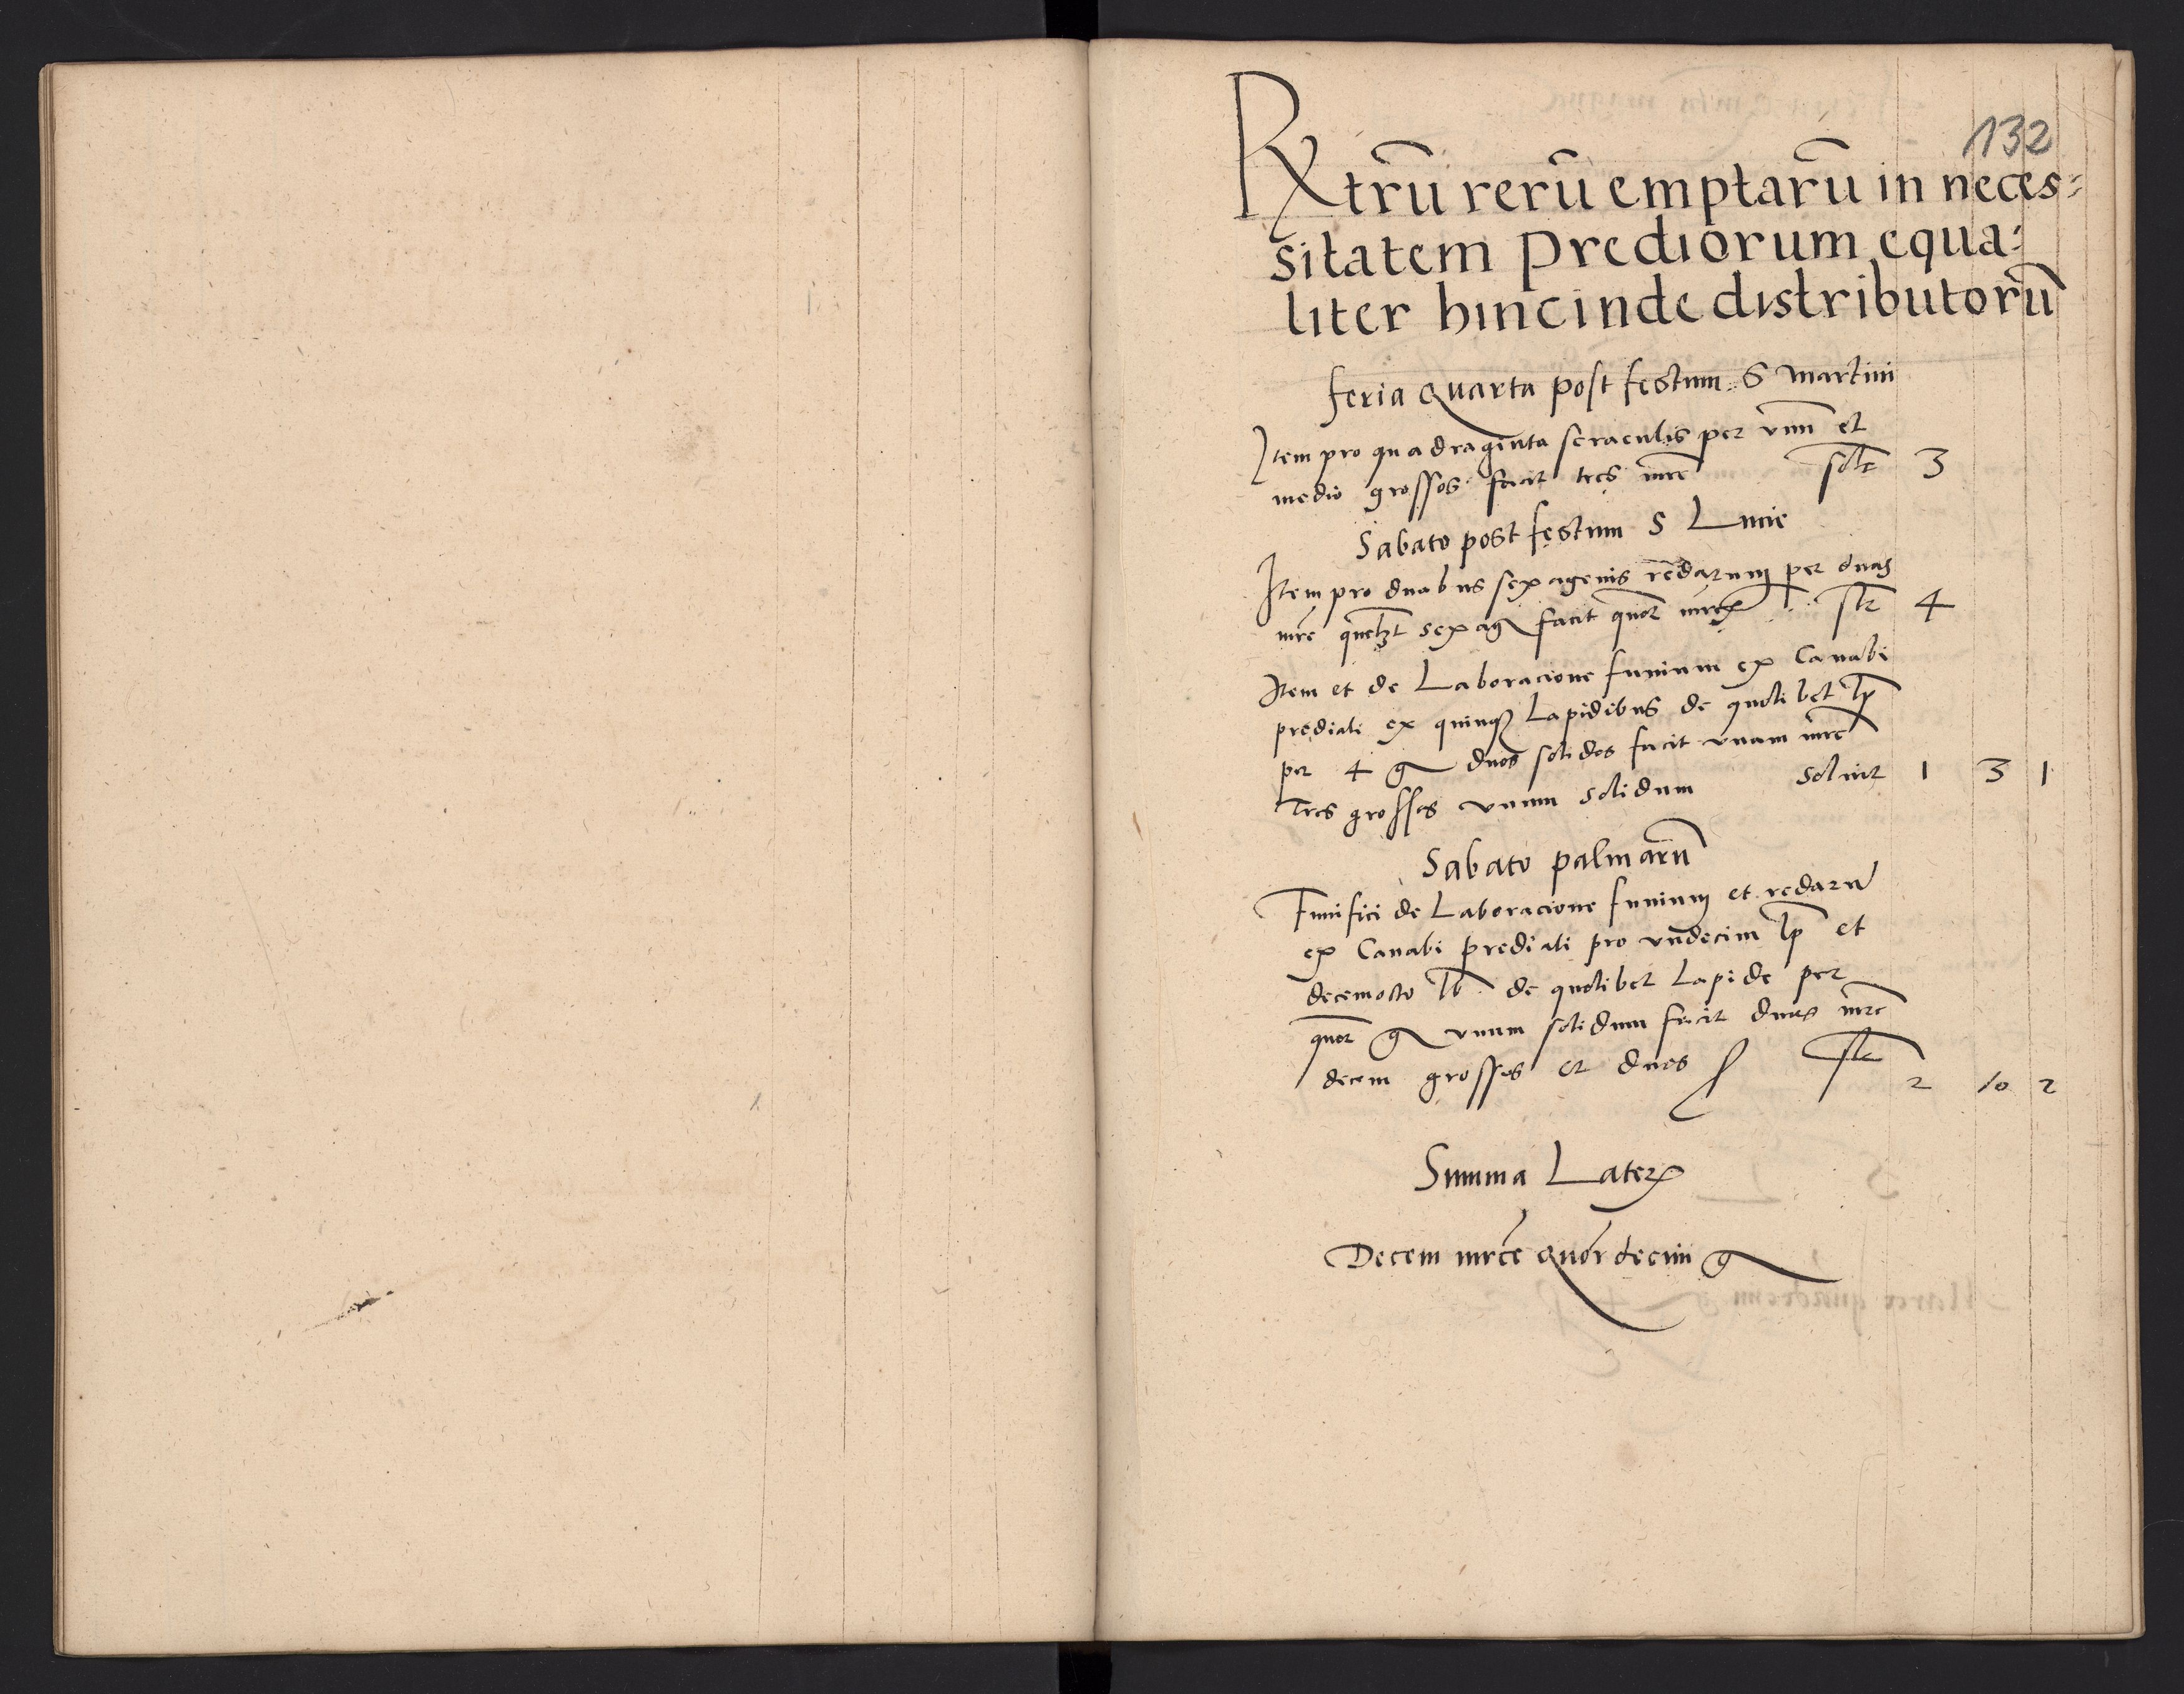 132
Rxtrū rerū emptarū in neces=
sitatem prediorum equa=
liter hincinde distributorū
feria quarta post festum S Martini
Item pro quadraginta seraculis per vnū et
medio grossos facit tres mrc̄ solt 3
Sabato post festum S Lucie
Item pro duabus sexagenis rēdarum per duas
mrc̄ quelꝫt sexag facit quōr mrc̄ slt 4
Item et de Laboracione funium ex Canabi
prediali ex quinqꝫ Lapidibus de quolibet lp̄
per 4 g duos solidos facit vnam mrc̄
Tres grossos vnum solidum soluit 1 3 1
Sabato palmarū
Funifici de Laboracione funium et redarū
ex Canabi prediali pro vndecim lp̄ et
decemocto lb de quolibet Lapide per
quōr g vnum solidum facit duas mrc̄
decem grossos et duos ß slt 2 10 2
Summa Later
Decem mrce quōrdecim g